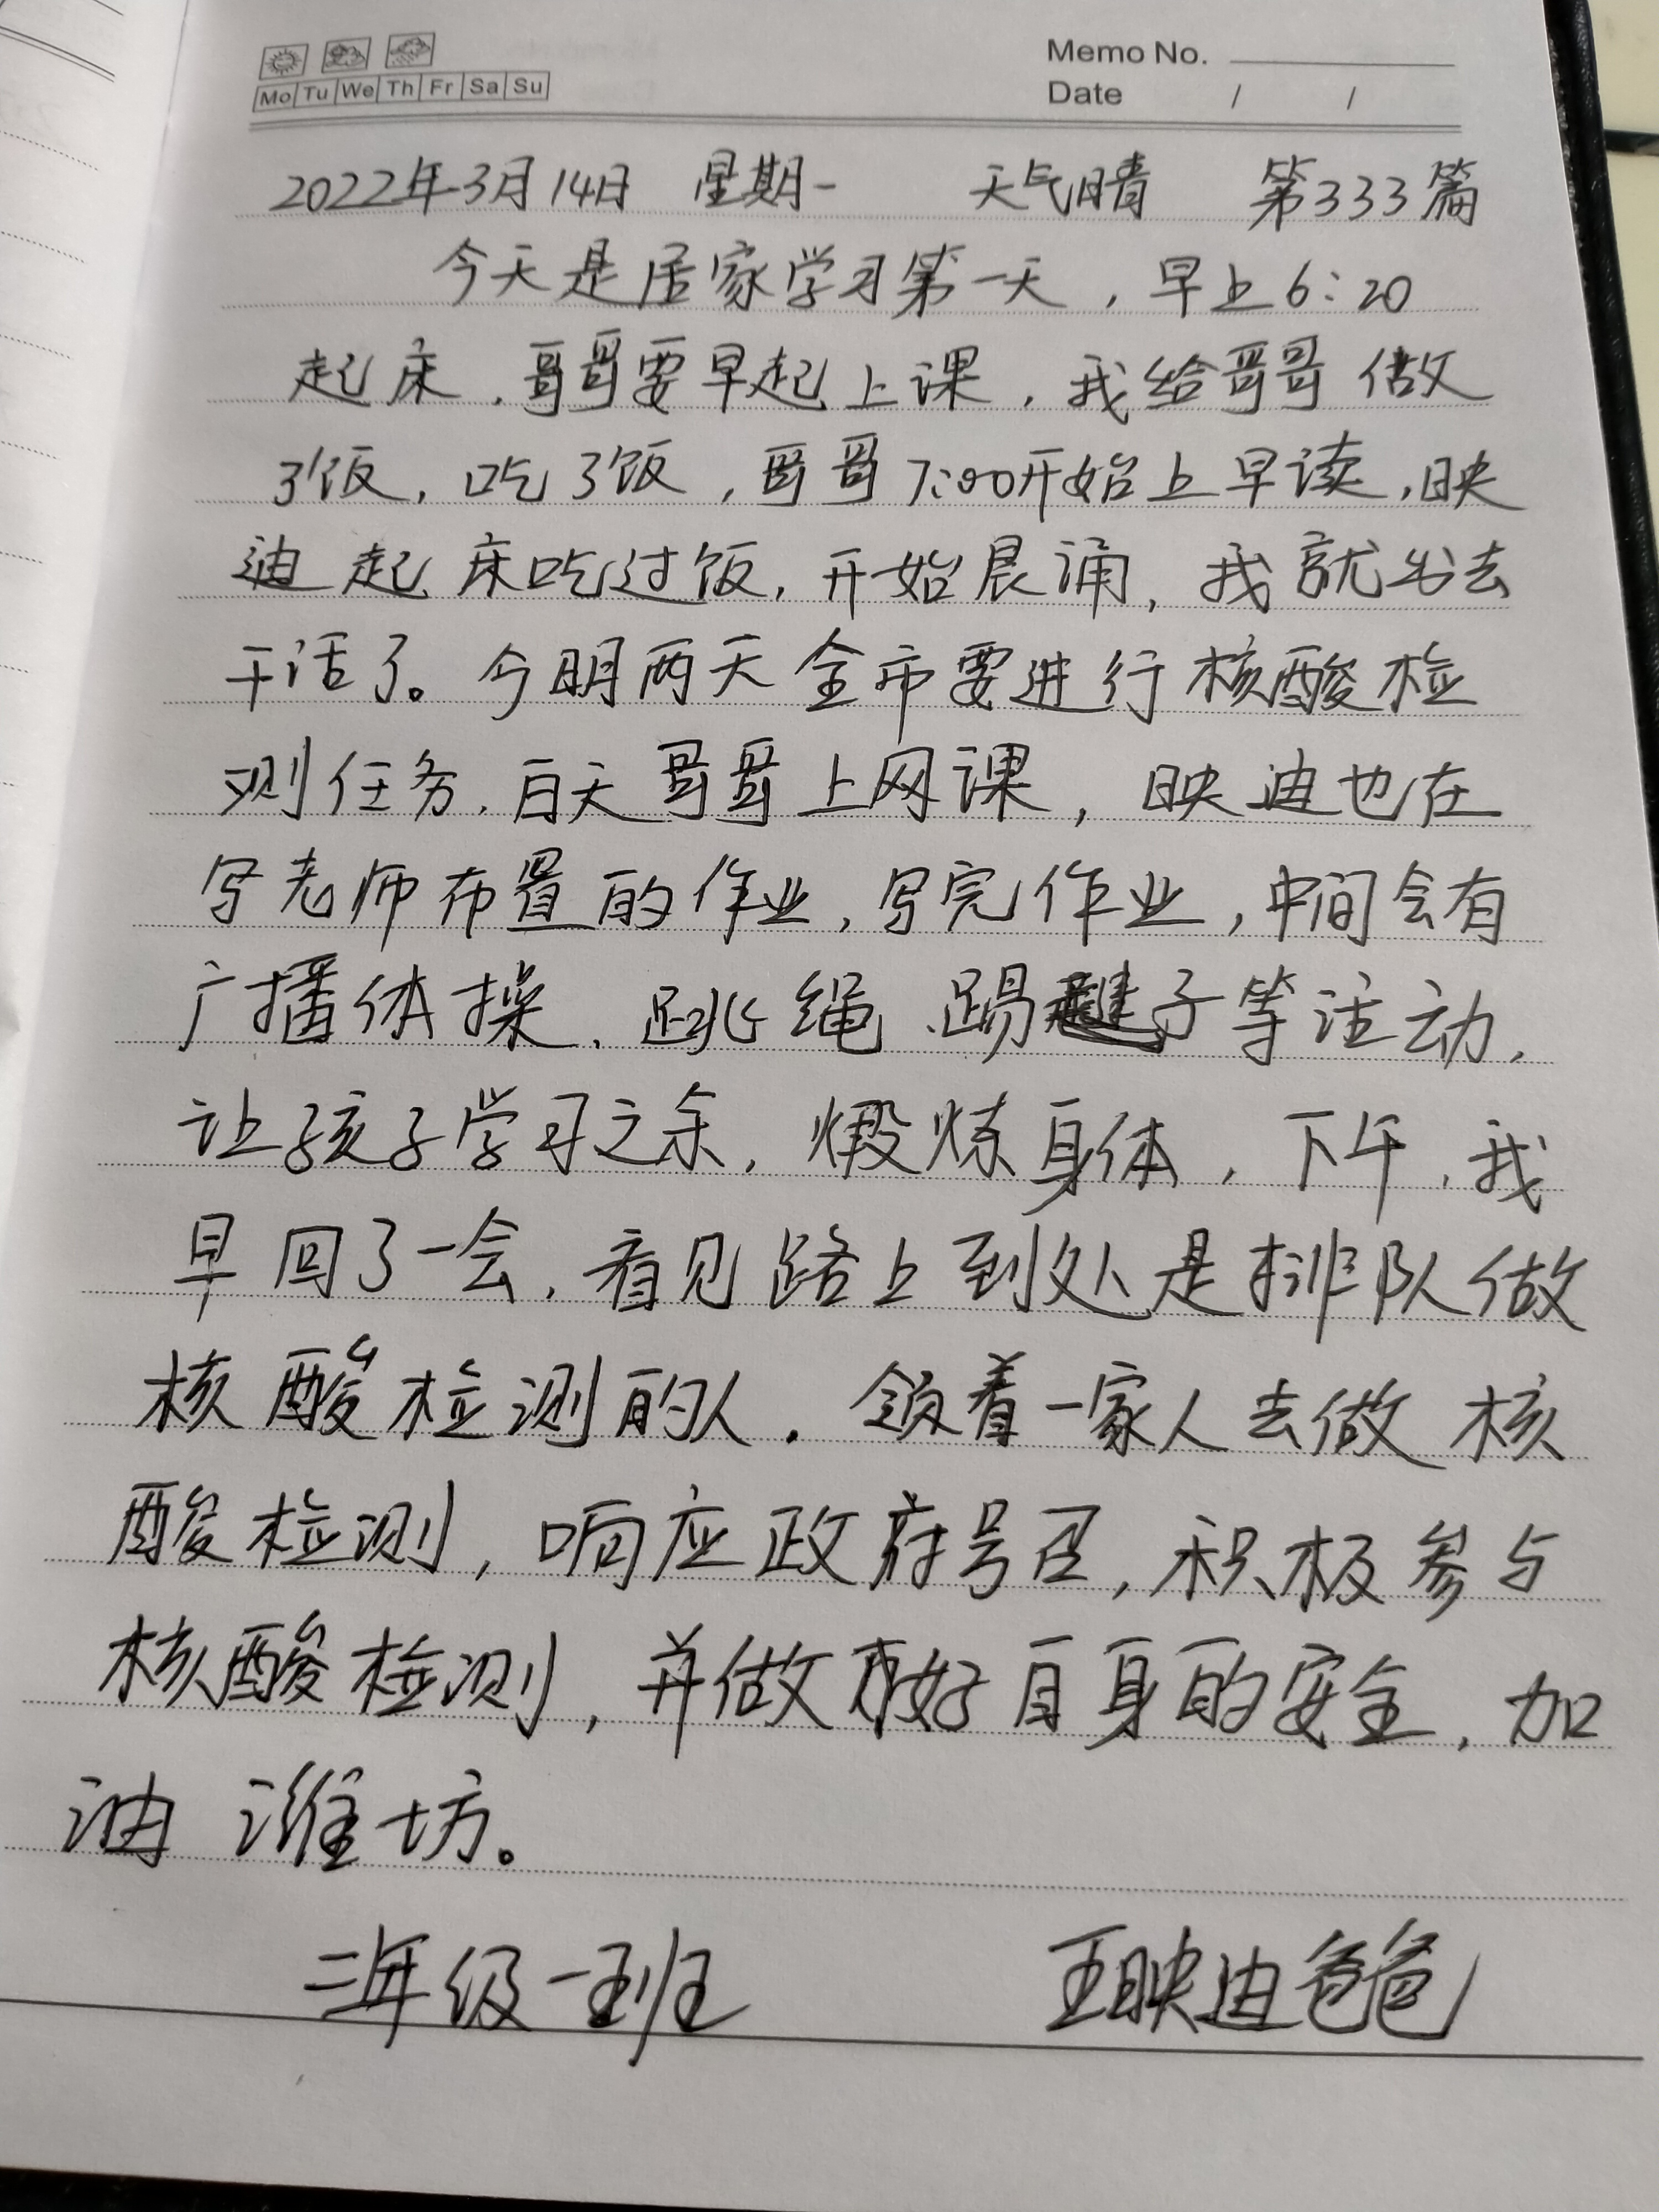 Memo No.
Mo Tu We Th Fr Sa Su
Date / /
2022年3月14日 星期一 天气晴 第333篇
今天是居家学习第一天，早上6:20
起床，哥哥要早起上课，我给哥哥做
了饭，吃了饭，哥哥7:00开始上早读，映
迪起床吃过饭，开始晨诵，我就出去
干活了。今明两天全市要进行核酸检
测任务，白天哥哥上网课，映迪也在
写老师布置的作业，写完作业，中间会有
广播体操、跳绳、踢毽子等活动，
让孩子学习之余，煅炼身体，下午，我
早回了一会，看见路上到处是排队做
核酸检测的人。领着一家人去做核
酸检测，响应政府号召，积极参与
核酸检测，并做好自身的安全，加
油潍坊。
二年级一班 王映迪爸爸